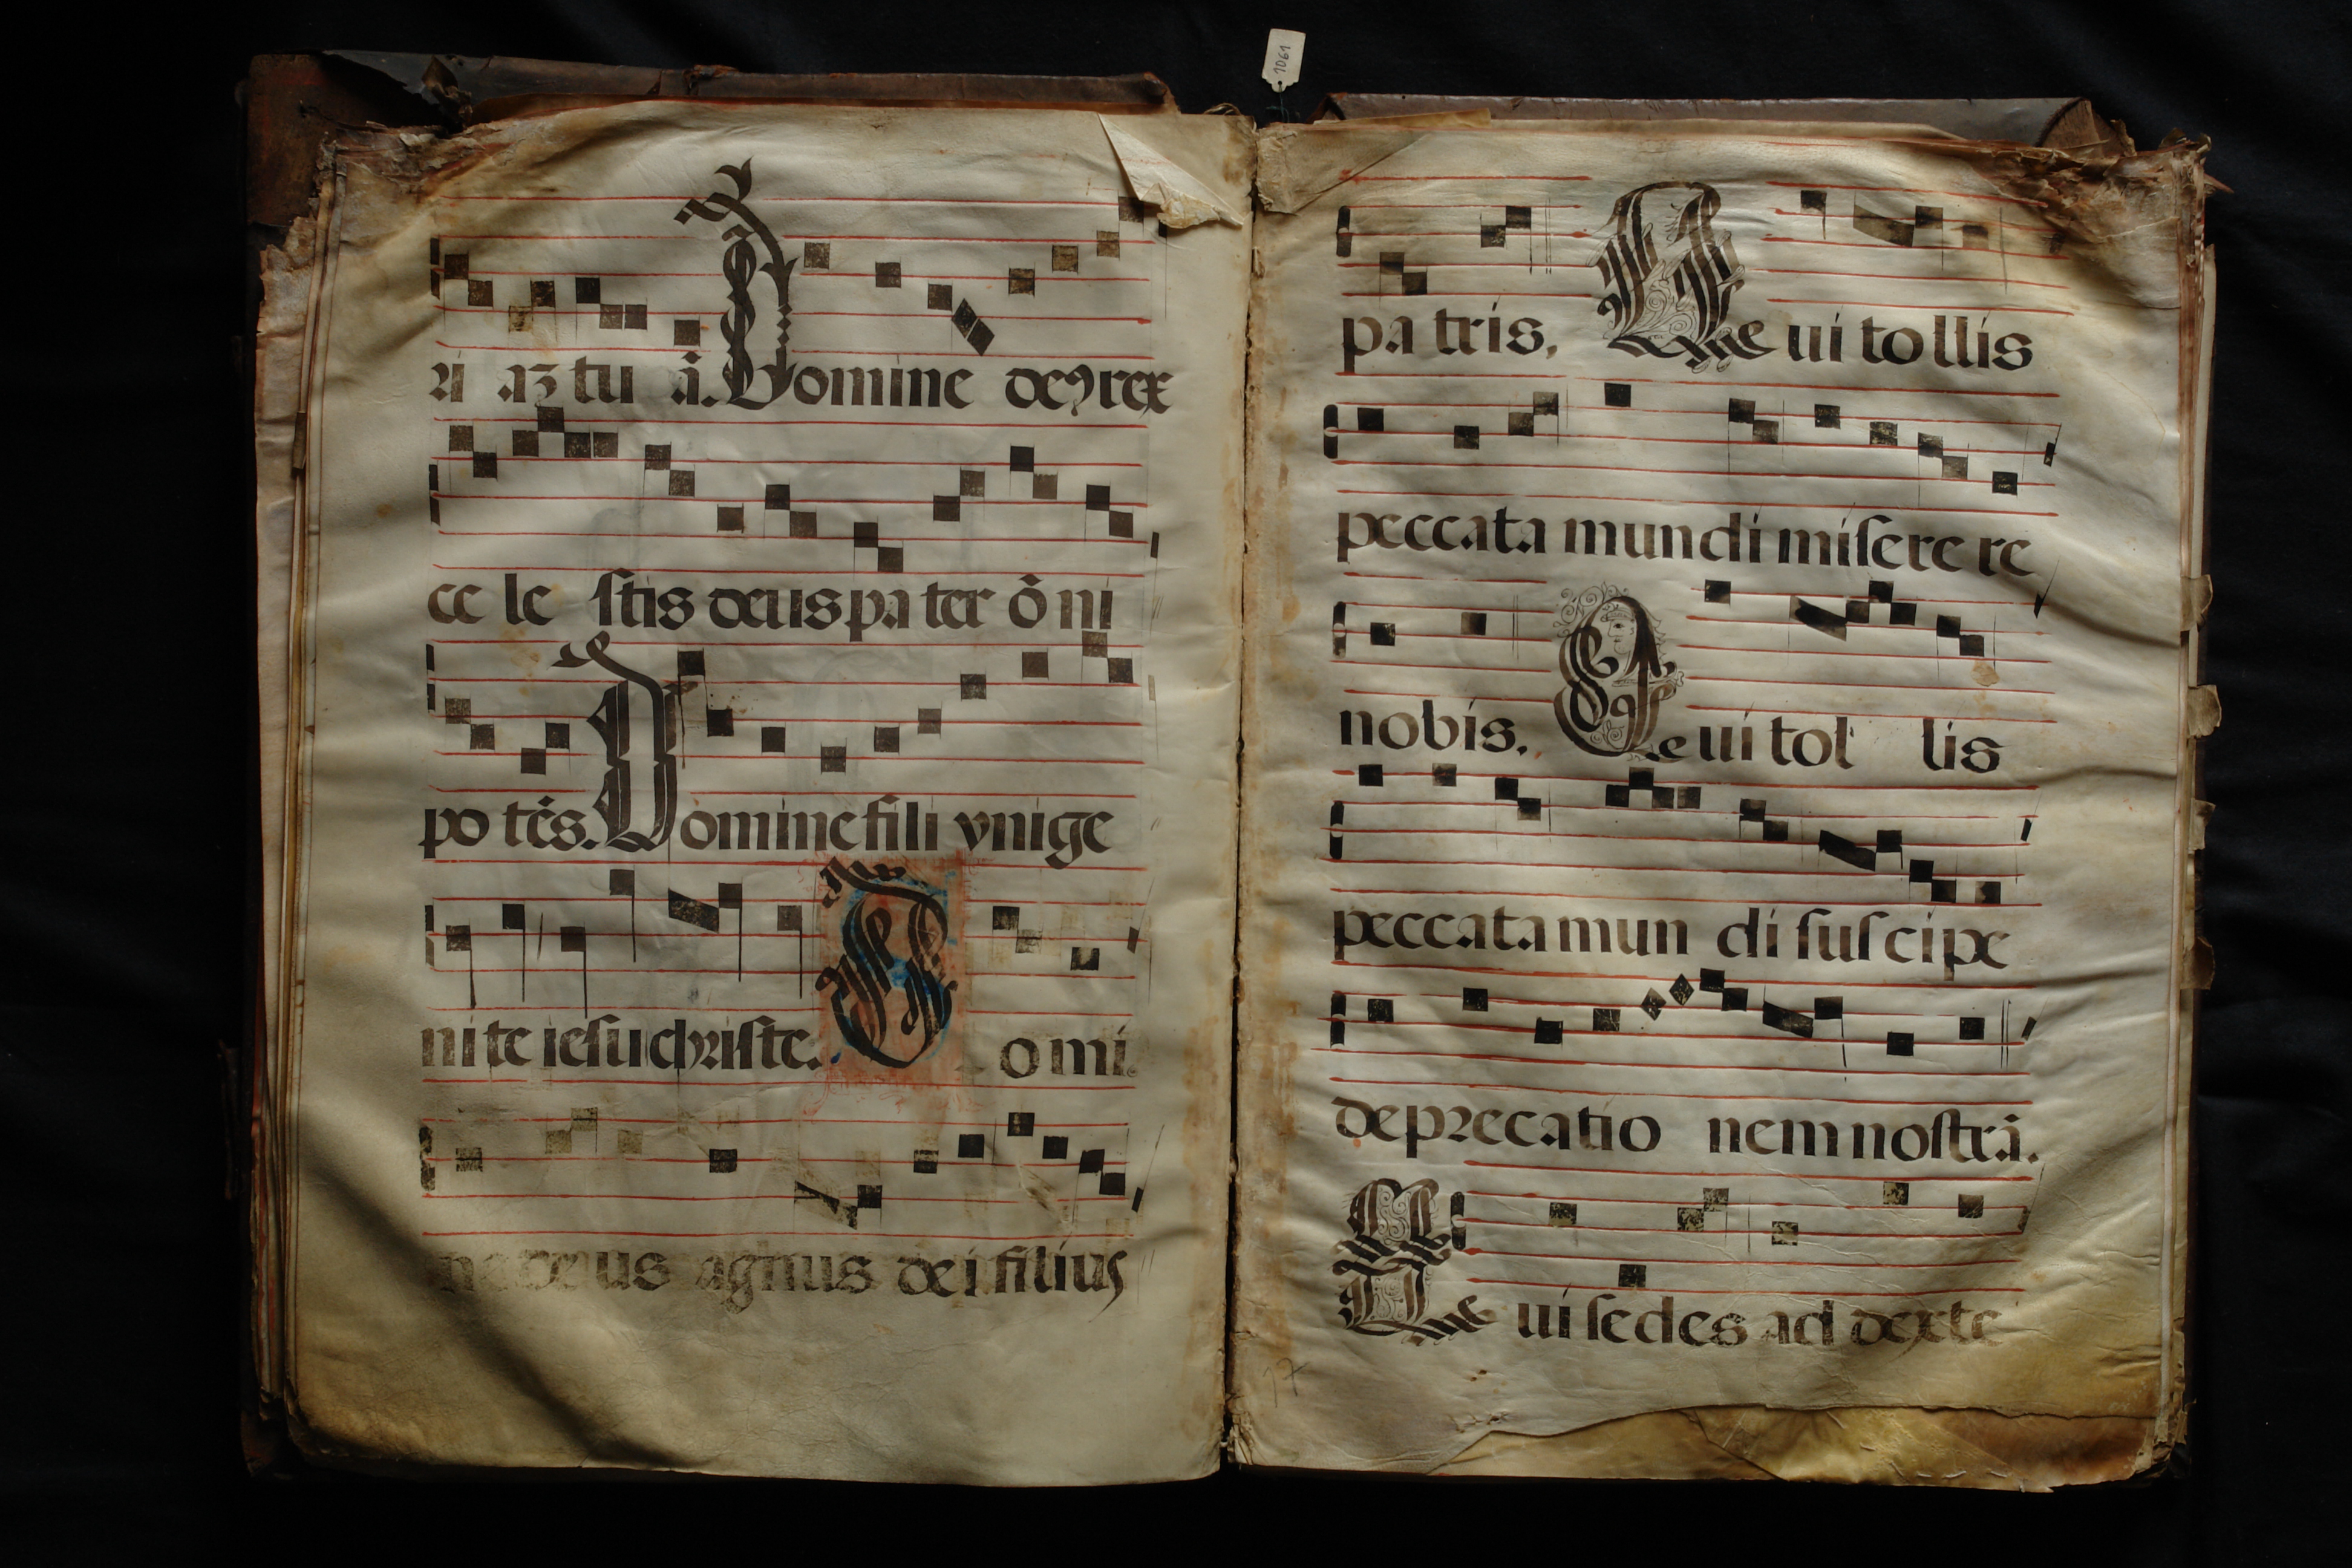 1061
ri az tu ā. Domine deꝯ rex
ce le ſtis deus pa ter ō ni
po tēs. Domine fili vnige
ni te ieſu chriſte. Domi
ne deus agnus dei filius
pa tris, Que ui tollis
peccata mundi miſere re
nobis, Que ui tol lis
peccata mun di ſuſ cipe
deprecatio nem noſtrā.
Que ui ſedes ad dexte
17